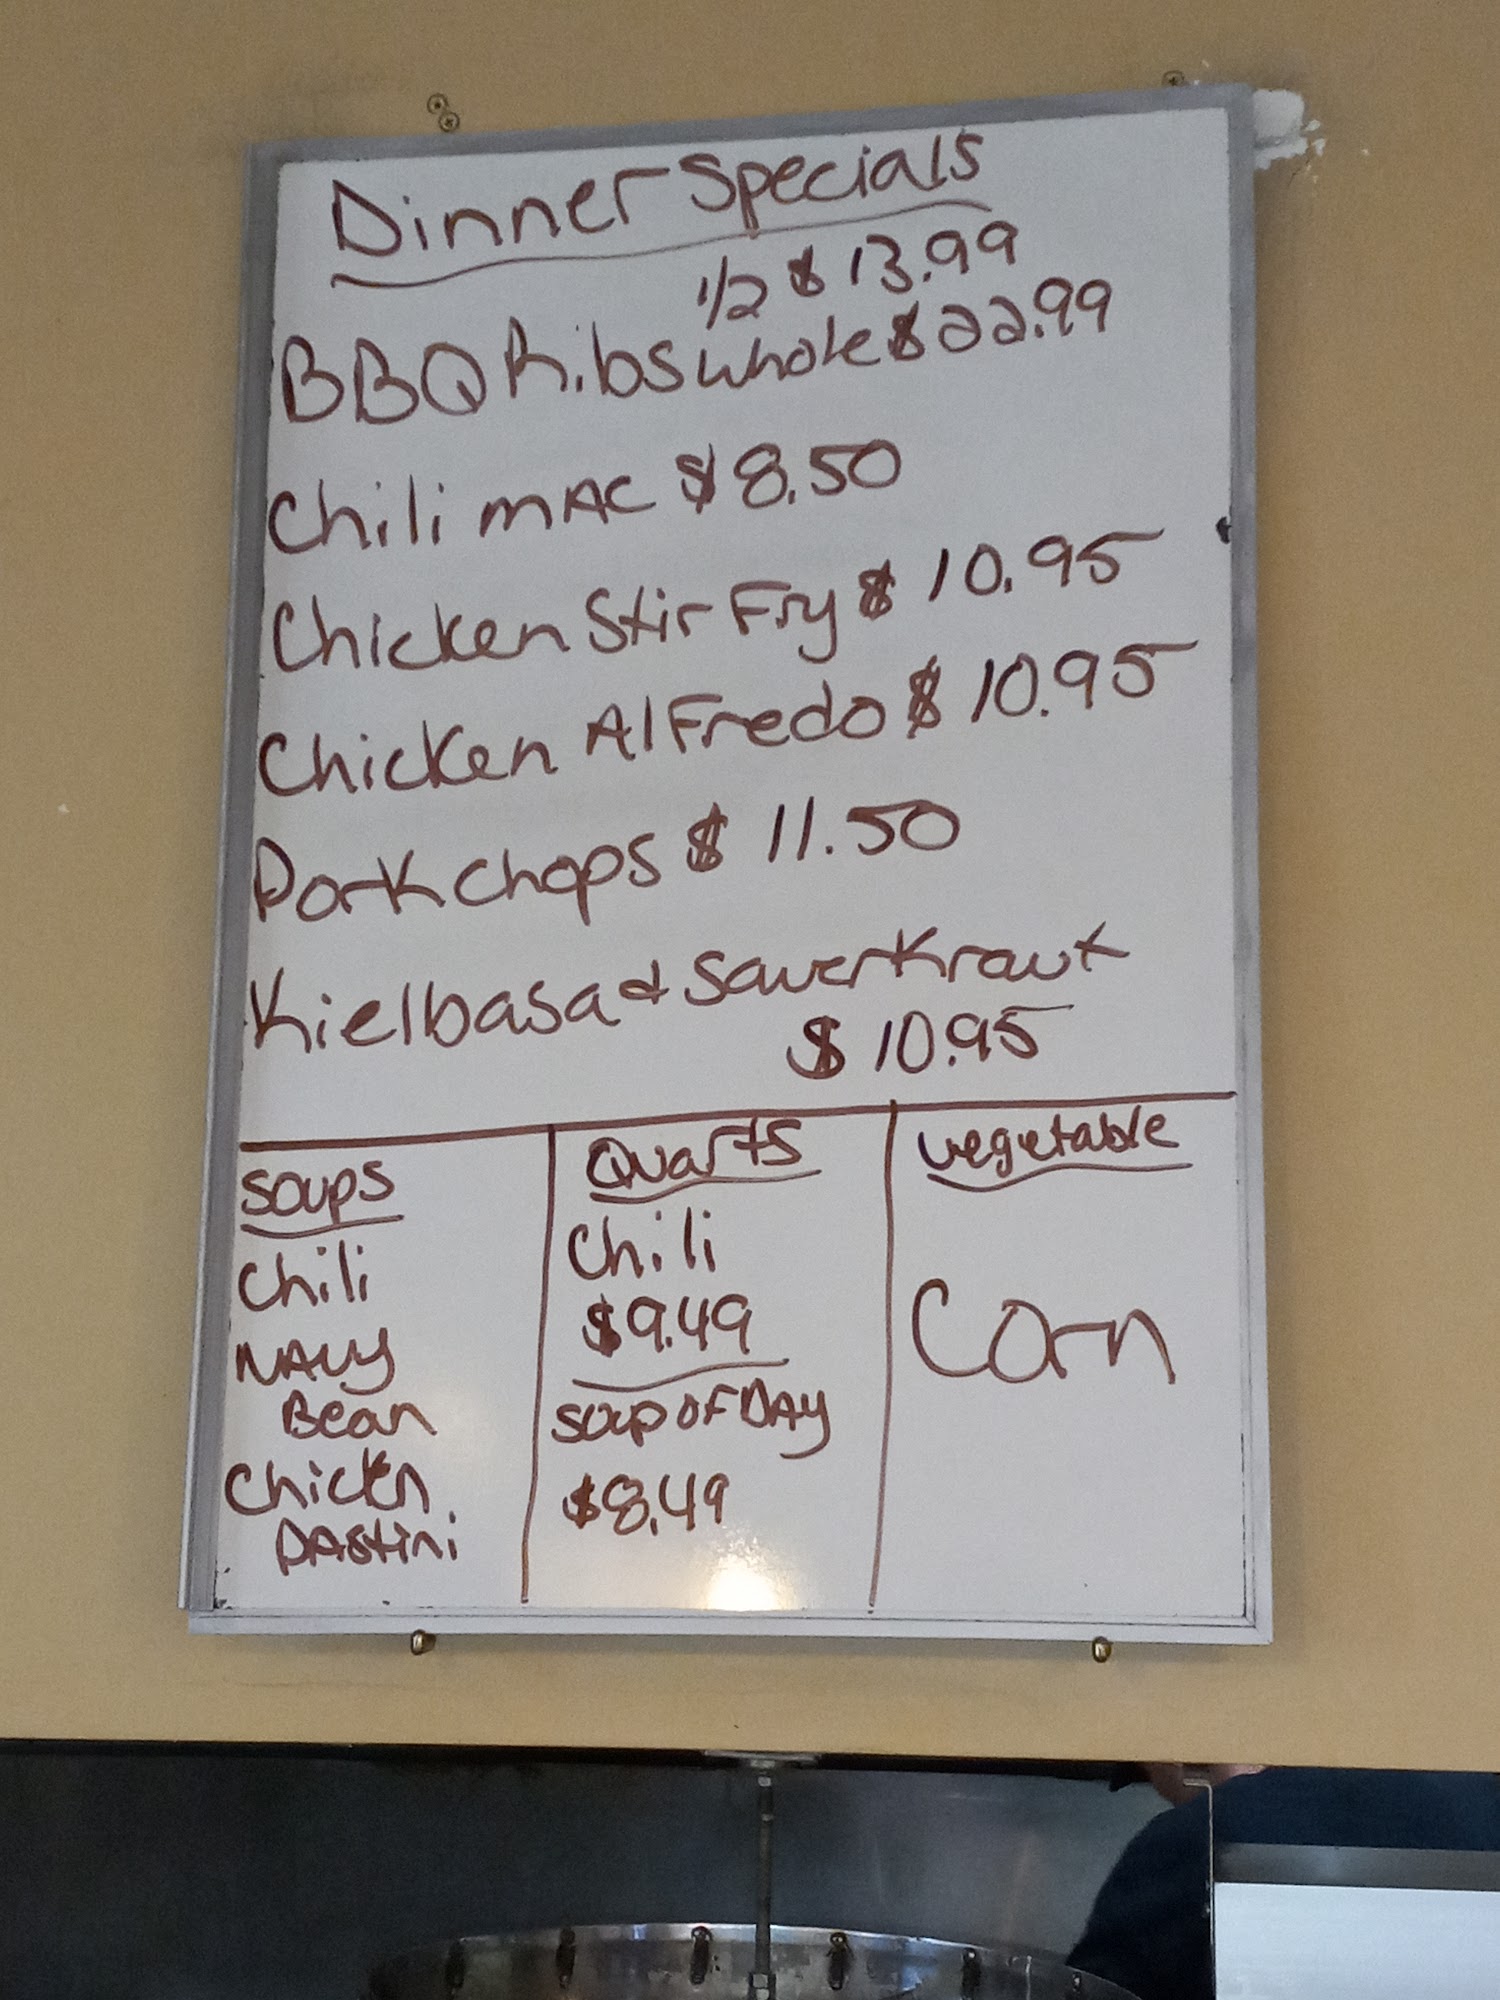 Dinner Specials
1/2 $13.99
BBQ Ribs whole $22.99
Chili mAC $8.50
Chicken Stir Fry $10.95
Chicken AlFredo $10.95
Pork chops $11.50
Kielbasa & SauerKraut
$10.95
Soups
Chili
NAvy
Bean
Chicken
PAstini
Quarts
Chili
$9.49
Soup OF DAy
$8.49
vegetable
Corn